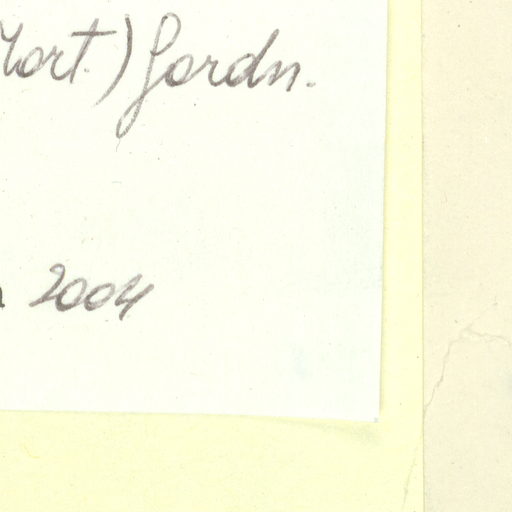 Mort.) Gordn.
2004